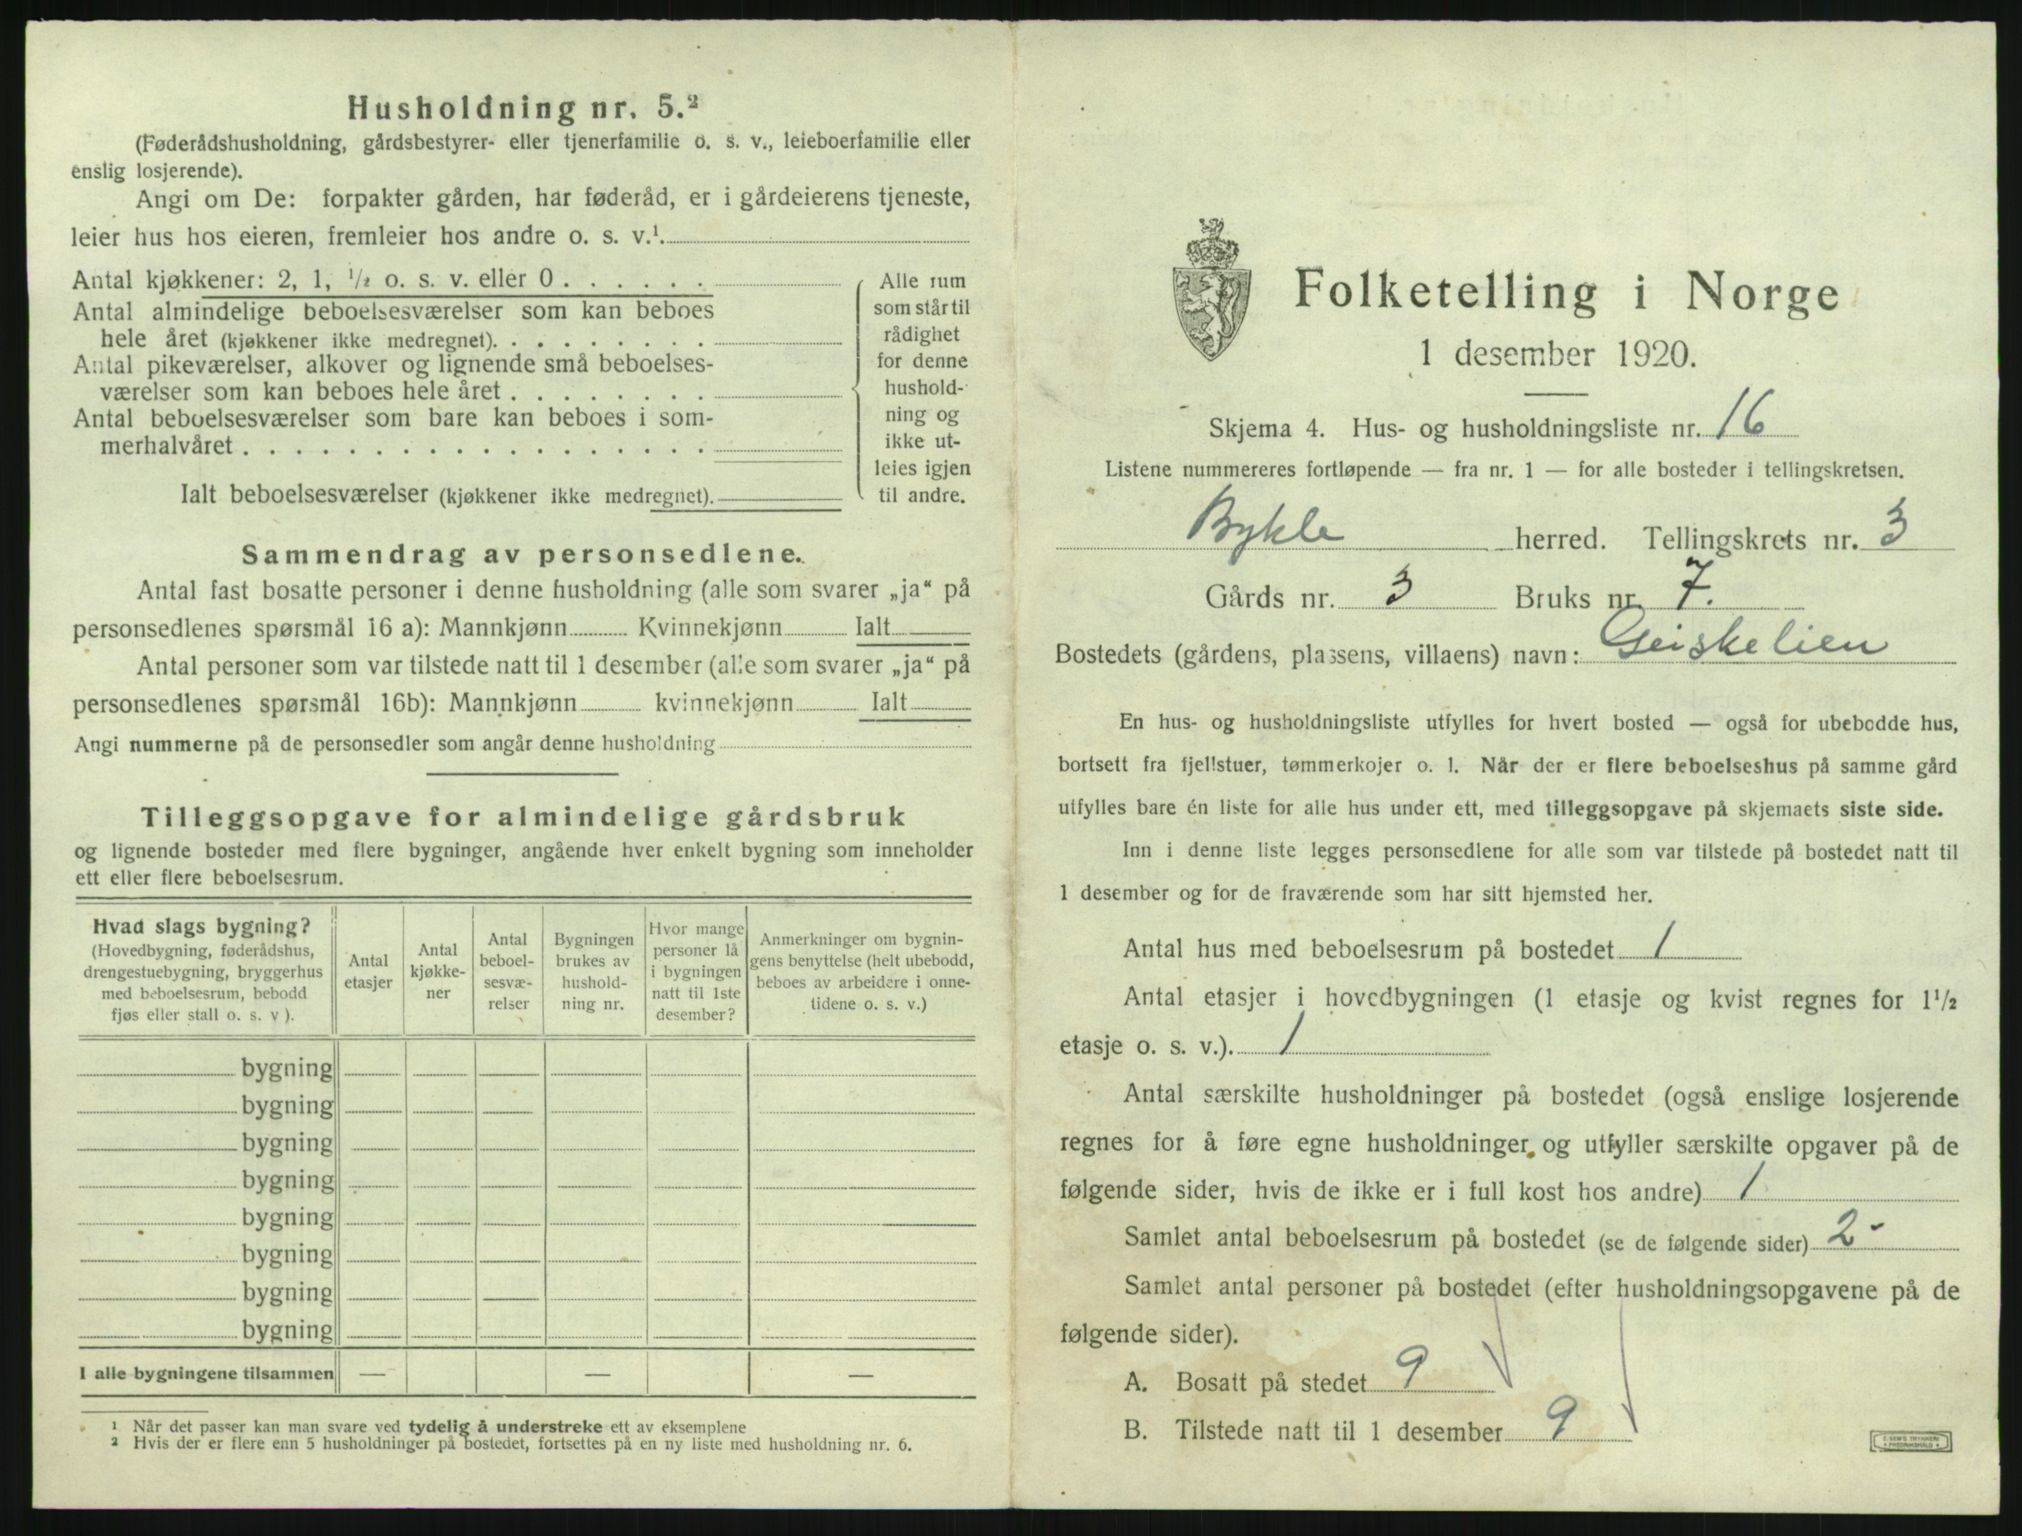 Husholdning nr. 5.²
(Føderådshusholdning, gårdsbestyrer- eller tjenerfamilie o. s. v., leieboerfamilie eller
enslig losjerende).
Angi om De: forpakter gården, har føderåd, er i gårdeierens tjeneste,
leier hus hos eieren, fremleier hos andre o. s. v.¹.
Antal kjøkkener: 2, 1, ¹/₂ o. s. v. eller 0 . . . . . .
Antal almindelige beboelsesværelser som kan beboes
hele året (kjøkkener ikke medregnet). . . . . . . . .
Antal pikeværelser, alkover og lignende små beboelses-
værelser som kan beboes hele året . . . . . . . .
Antal beboelsesværelser som bare kan beboes i som-
merhalvåret . . . . . . . . . . . . . . . . . .
Ialt beboelsesværelser (kjøkkener ikke medregnet).
Alle rum
som står til
rådighet
for denne
hushold-
ning og
ikke ut-
leies igjen
til andre.
Sammendrag av personsedlene.
Antal fast bosatte personer i denne husholdning (alle som svarer „ja“ på
personsedlenes spørsmål 16 a): Mannkjønn Kvinnekjønn Ialt
Antal personer som var tilstede natt til 1 desember (alle som svarer „ja“ på
personsedlenes spørsmål 16b): Mannkjønn kvinnekjønn Ialt
Angi nummerne på de personsedler som angår denne husholdning
Tilleggsopgave for almindelige gårdsbruk
og lignende bosteder med flere bygninger, angående hver enkelt bygning som inneholder
ett eller flere beboelsesrum.
Hvad slags bygning?
(Hovedbygning, føderådshus,
drengestuebygning, bryggerhus
med beboelsesrum, bebodd
fjøs eller stall o. s. v ).
Antal
etasjer
Antal
kjøkke-
ner
Antal
beboel-
sesvæ-
relser
Bygningen
brukes av
hushold-
ning nr.
Hvor mange
personer lå
i bygningen
natt til 1ste
desember?
Anmerkninger om bygnin-
gens benyttelse (helt ubebodd,
beboes av arbeidere i onne-
tidene o. s. v.)
bygning
bygning
bygning
bygning
bygning
bygning
bygning
bygning
I alle bygningene tilsammen — — —
¹ Når det passer kan man svare ved tydelig å understreke ett av eksemplene
² Hvis der er flere enn 5 husholdninger på bostedet, fortsettes på en ny liste med husholdning nr. 6.
Folketelling i Norge
1 desember 1920.
Skjema 4. Hus- og husholdningsliste nr. 16
Listene nummereres fortløpende — fra nr. 1 — for alle bosteder i tellingskretsen.
Bykle herred. Tellingskrets nr. 3
Gårds nr. 3 Bruks nr. 7.
Bostedets (gårdens, plassens, villaens) navn: Geiskelien
En hus- og husholdningsliste utfylles for hvert bosted — også for ubebodde hus,
bortsett fra fjellstuer, tømmerkojer o. l. Når der er flere beboelseshus på samme gård
utfylles bare én liste for alle hus under ett, med tilleggsopgave på skjemaets siste side.
Inn i denne liste legges personsedlene for alle som var tilstede på bostedet natt til
1 desember og for de fraværende som har sitt hjemsted her.
Antal hus med beboelsesrum på bostedet 1
Antal etasjer i hovedbygningen (1 etasje og kvist regnes for 1¹/₂
etasje o. s. v.). 1
Antal særskilte husholdninger på bostedet (også enslige losjerende
regnes for å føre egne husholdninger og utfyller særskilte opgaver på de
følgende sider, hvis de ikke er i full kost hos andre) 1
Samlet antal beboelsesrum på bostedet (se de følgende sider) 2-
Samlet antal personer på bostedet (efter husholdningsopgavene på de
følgende sider).
A. Bosatt på stedet 9
B. Tilstede natt til 1 desember 9
E. SEM'S TRYKKERI
FREDRIKSHALD